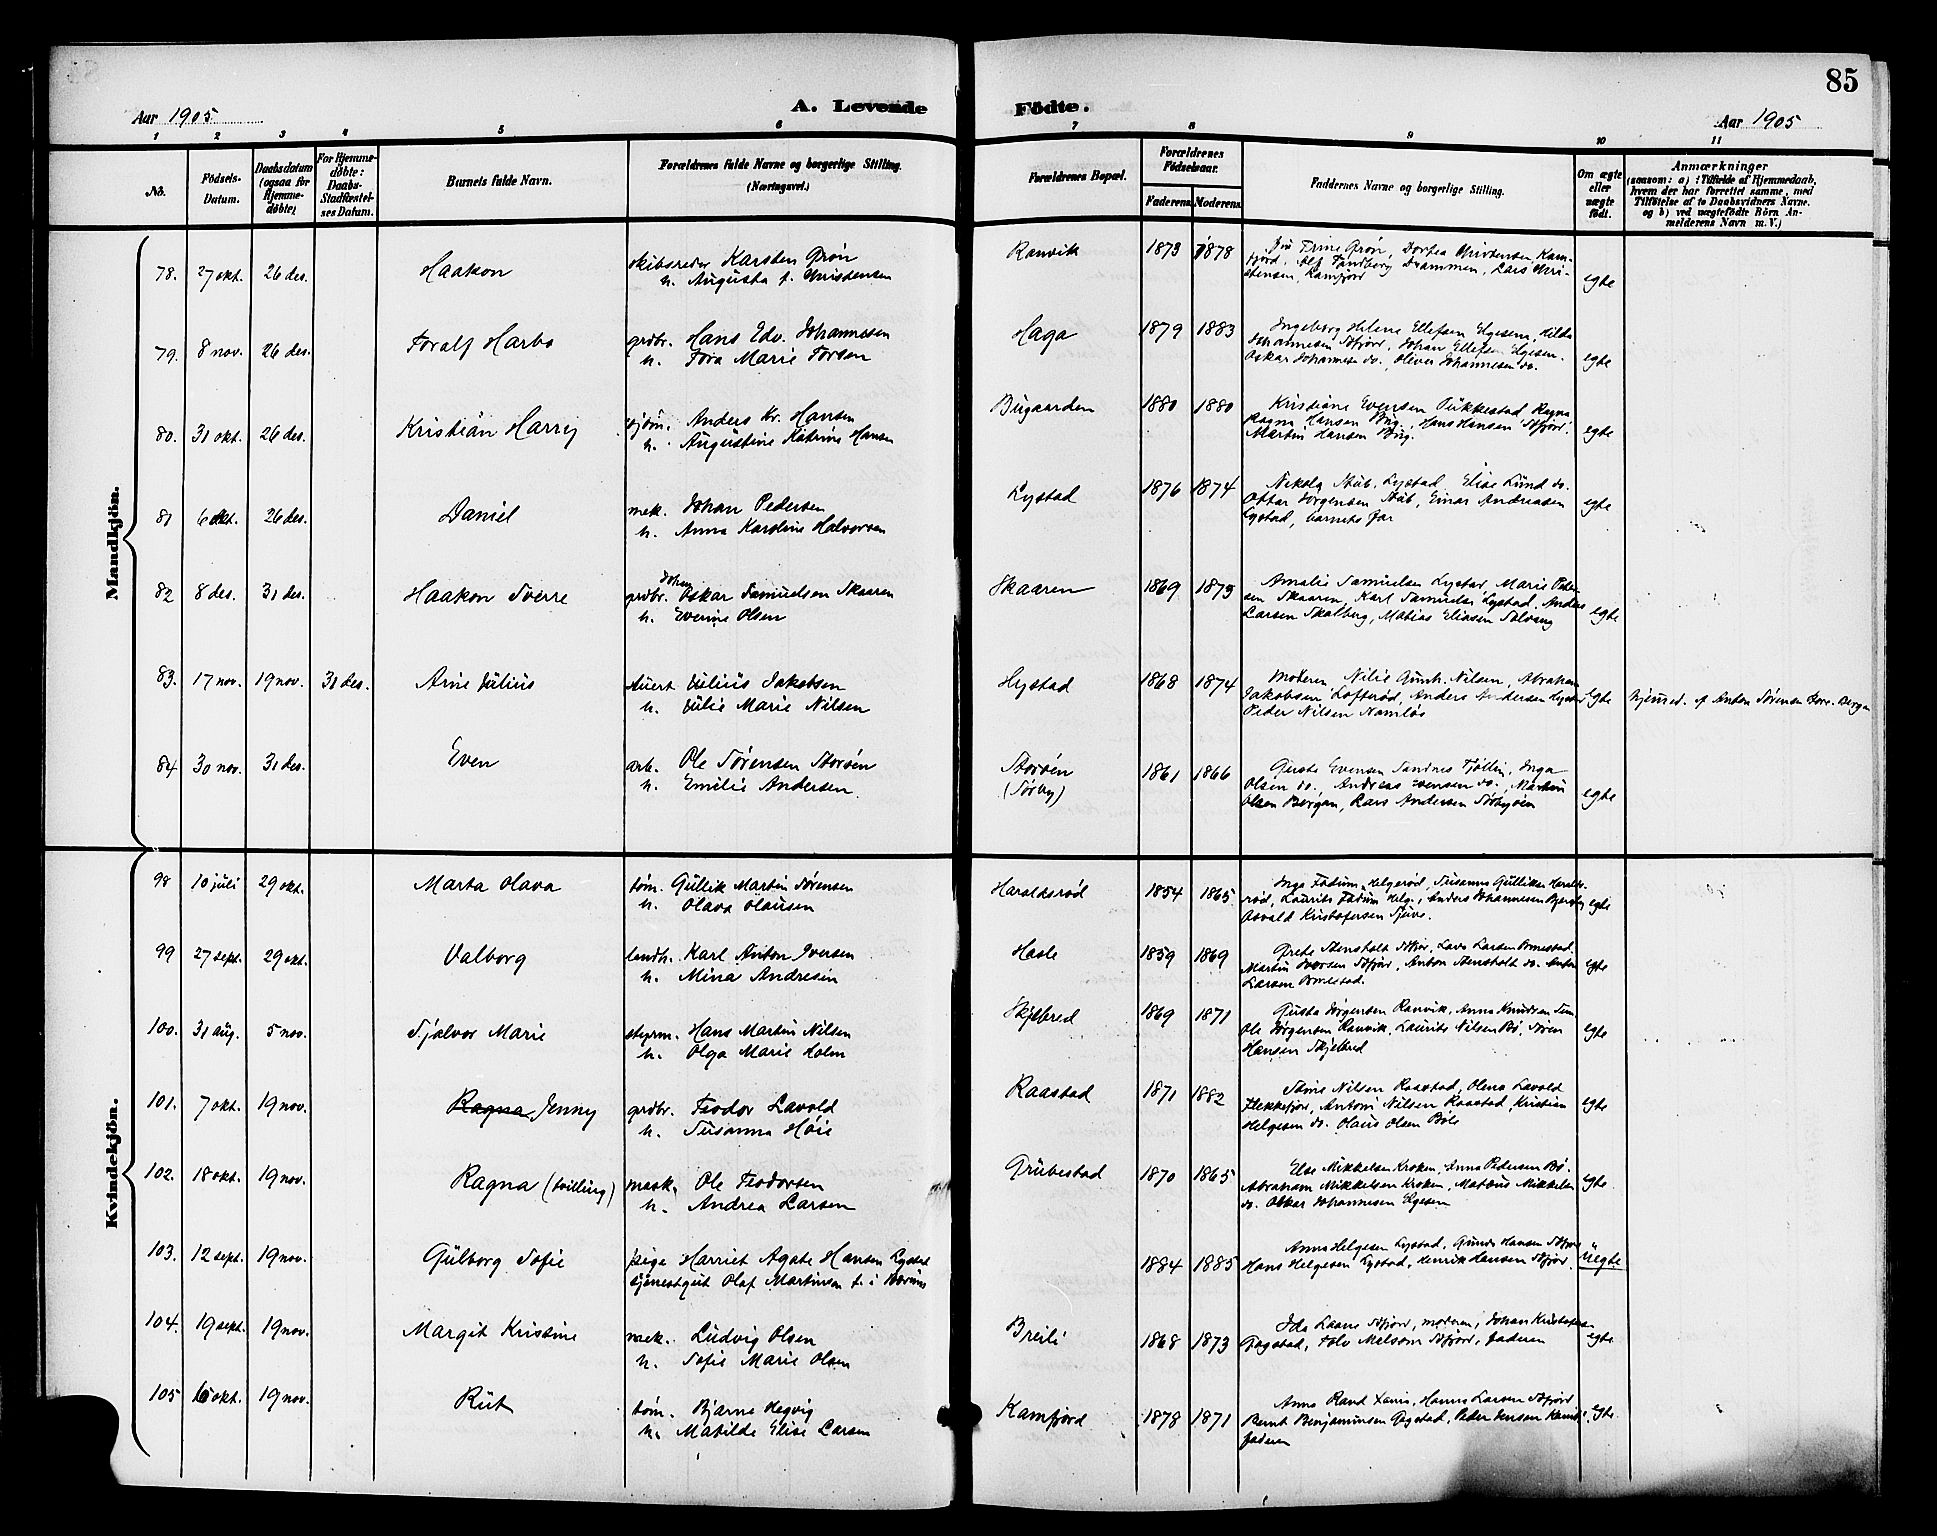 85
Aar 1905
A. Levende
Födte.
Aar 1905
1 2 3 4 5 6 7 8 9 10 11
No.
Födsels-
Datum.
Daabsdatum
(ogsaa for
Hjemme-
döbte)
For Hjemme-
döbte:
Daabs-
Stadfæstel-
ses Datum.
Barnets fulde Navn.
Forældrenes fulde Navne og borgerlige Stilling.
(Næringsvei.)
Forældrenes Bopæl.
Forældrenes
Födselsaar.
Faderens Moderens
Faddernes Navne og borgerlige Stilling.
Om ægte
eller
uægte
födt.
Anmærkninger
(saasom: a) i Tilfælde af Hjemmedaab,
hvem der har forrettet samme, med
Tilföielse af to Daabsvidners Navne.
og b) ved uægtefödte Börn An-
melderens Navn m. V.)
Mandkjön.
78. 27 okt. 26 des. Haakon
skibsreder Karsten Grøn
h. Augusta f. Christensen
Ranvik 1873 1878
Trine Grøn, Dortea Christensen, Kam-
fjord, Alf Sandberg Drammen, Lars Chri-
stensen, Kamfjord
egte
79. 8 nov. 26 des. Toralf Harbo
grdbr. Hans Edv. Johannesen
h. Tora Marie Torsen
Haga 1879 1883
Ingeborg Helene Ellefsen Elgesem, Hilda
Johannesen Sfjord, Johan Ellefsen Elgesem.
Oskar Johannesen do., Oliver Johannesen do.
egte
80. 31 okt. 26 des. Kristian Harry
sjöm. Anders Kr. Hansen
h. Augustine Katrine Hansen
Bugaarden 1880 1880
Kristiane Evensen Pukkestad, Ragna
Ragna Hansen Bug., Hans Hansen Sfjord.
Martin Hansen Bug.
egte
81 6 okt. 26 des. Daniel
mek. Johan Pedersen
h. Anna Karoline Halvorsen
Lystad 1876 1874
Nikola Stub, Lystad, Elise Lund do.
Ottar Jørgensen Stub, Einar Andreasen
Lystad, barnets far
egte
82 8 des. 31 des. Haakon Sverre
Johan
grdbr. Oskar Samuelsen Skaaren
h. Everine Olsen
Skaaren 1869 1875
Amalie Samuelsen Lystad, Marie Peder-
sen Skaaren, Karl Samuelsen Lystad, Anders
Larsen Skalberg, Matias Eliasen Solvang
egte
83. 17 nov. 19 nov. 31 des. Arne Julius
stuert Julius Jakobsen
h. Julie Marie Nilsen
Hystad 1868 1874
Moderen Nilie Gunh. Nilsen, Abraham
Jakobsen Lofterød, Anders Andersen Hystad
Peder Nilsen Namløs
egte
hjemmed. af Anton Sørensen Bergan
84 30 nov. 31 des. Even
arb. Ole Sørensen Storøen
h. Emilie Andersen
Storøen
(Sørby)
1861 1866
Guste Evensen Sandnes Tjølling, Inga
Olsen do., Andreas Evensen do., Martin
Olsen Bergan, Lars Andersen Sørbyøen
egte
Kvindekjön.
98 10 juli 29 okt. Marta Olava
töm. Gullik Martin Sørensen
h. Olava Olausen
Haraldsrød 1854 1865
Inga Fadum Helgerød, Susanna Gulliksen Haralds-
rød, Laurits Fadum Helg., Anders Johannesen Bjerkø
Osvald Kristofersen Tjuve.
egte
99 27 sept. 29 okt. Valborg
landh. Karl Anton Iversen
h. Mina Andresen
Hasle 1859 1869
Grete Stensholt Sfjor, Lava Larsen Ormestad
Martin Iversen Sfjor, Anton Stensholt do. Anton
Larsen Ormestad.
egte
100. 31 aug. 5 nov. Sjalvor Marie
styrm. Hans Martin Nilsen
h. Olga Marie Holm
Skjelbred 1869 1871
Gusta Jørgensen Ranvik, Anna Knudsen
Ole Jørgensen Ranvik, Laurits Nilsen Bø, Søren
Hansen Skjelbred
egte
101. 7 okt. 19 nov. Ragna Jenny
grdbr. Teodor Lavold
h. Susanna Høie
Raastad 1871 1882
Stine Nilsen Raastad, Olena Lavold
Flekkefjor, Antoni Nilsen Raastad, Kristian
Helgesen do. Olaus Olsen Bøle
egte
102. 18 okt. 19 nov. Ragna (tvilling)
mask. Ole Teodorsen
h. Andrea Larsen
Grubestad 1870 1865
Else Mikkelsen Kroken, Anna Pedersen Bø.
Abraham Mikkelsen Kroken, Mathæus Mikkelsen
do. Oskar Johannesen Elgesem
egte
103. 12 sept. 19 nov. Gulborg Sofie
pige Harriet Agate Hansen Lystad
tjenestgut Olaf Martinsen f. i Borum
1884 1885
Anna Helgesen Lystad, Gunda Hansen Sfjor
Hans Helgesen Lystad, Henrik Hansen Sfjord.
uegte
104. 19 sept. 19 nov. Margit Kristine
mek. Ludvig Olsen
h. Sofie Marie Olsen
Breili 1868 1873
Ida Laane Sfjord, moderen, Johan Kristofersen
Gogstad, Tolv Melsom Sfjord, faderen
egte
105 15 okt. 19 nov. Rut
töm. Bjarne Hegvig
h. Matilde Elise Larsen
Kamfjord 1878 1871
Anna Rand Hanna Larsen Sfjord
Bernt Benjaminsen Gogstad, Peder Jensen Kamf.
faderen
egte